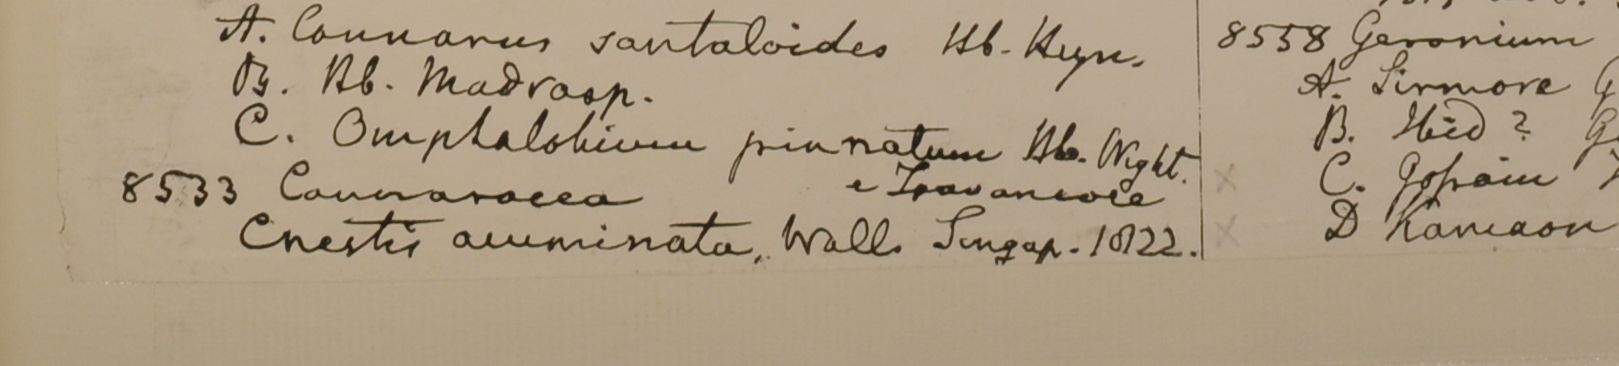 A. Connarus santaloides Hb. Heyn.
B. Hb. Madrasp.
C. Omphalobium pinnatum Hb. Wight.
e Travancore
8533 Connaracea
Cnestis acuminata, Wall. Singap. 1822.
8558 Geranium
A. Sirmore G
B. Ibid? G
C. Gosain
D Kamaon